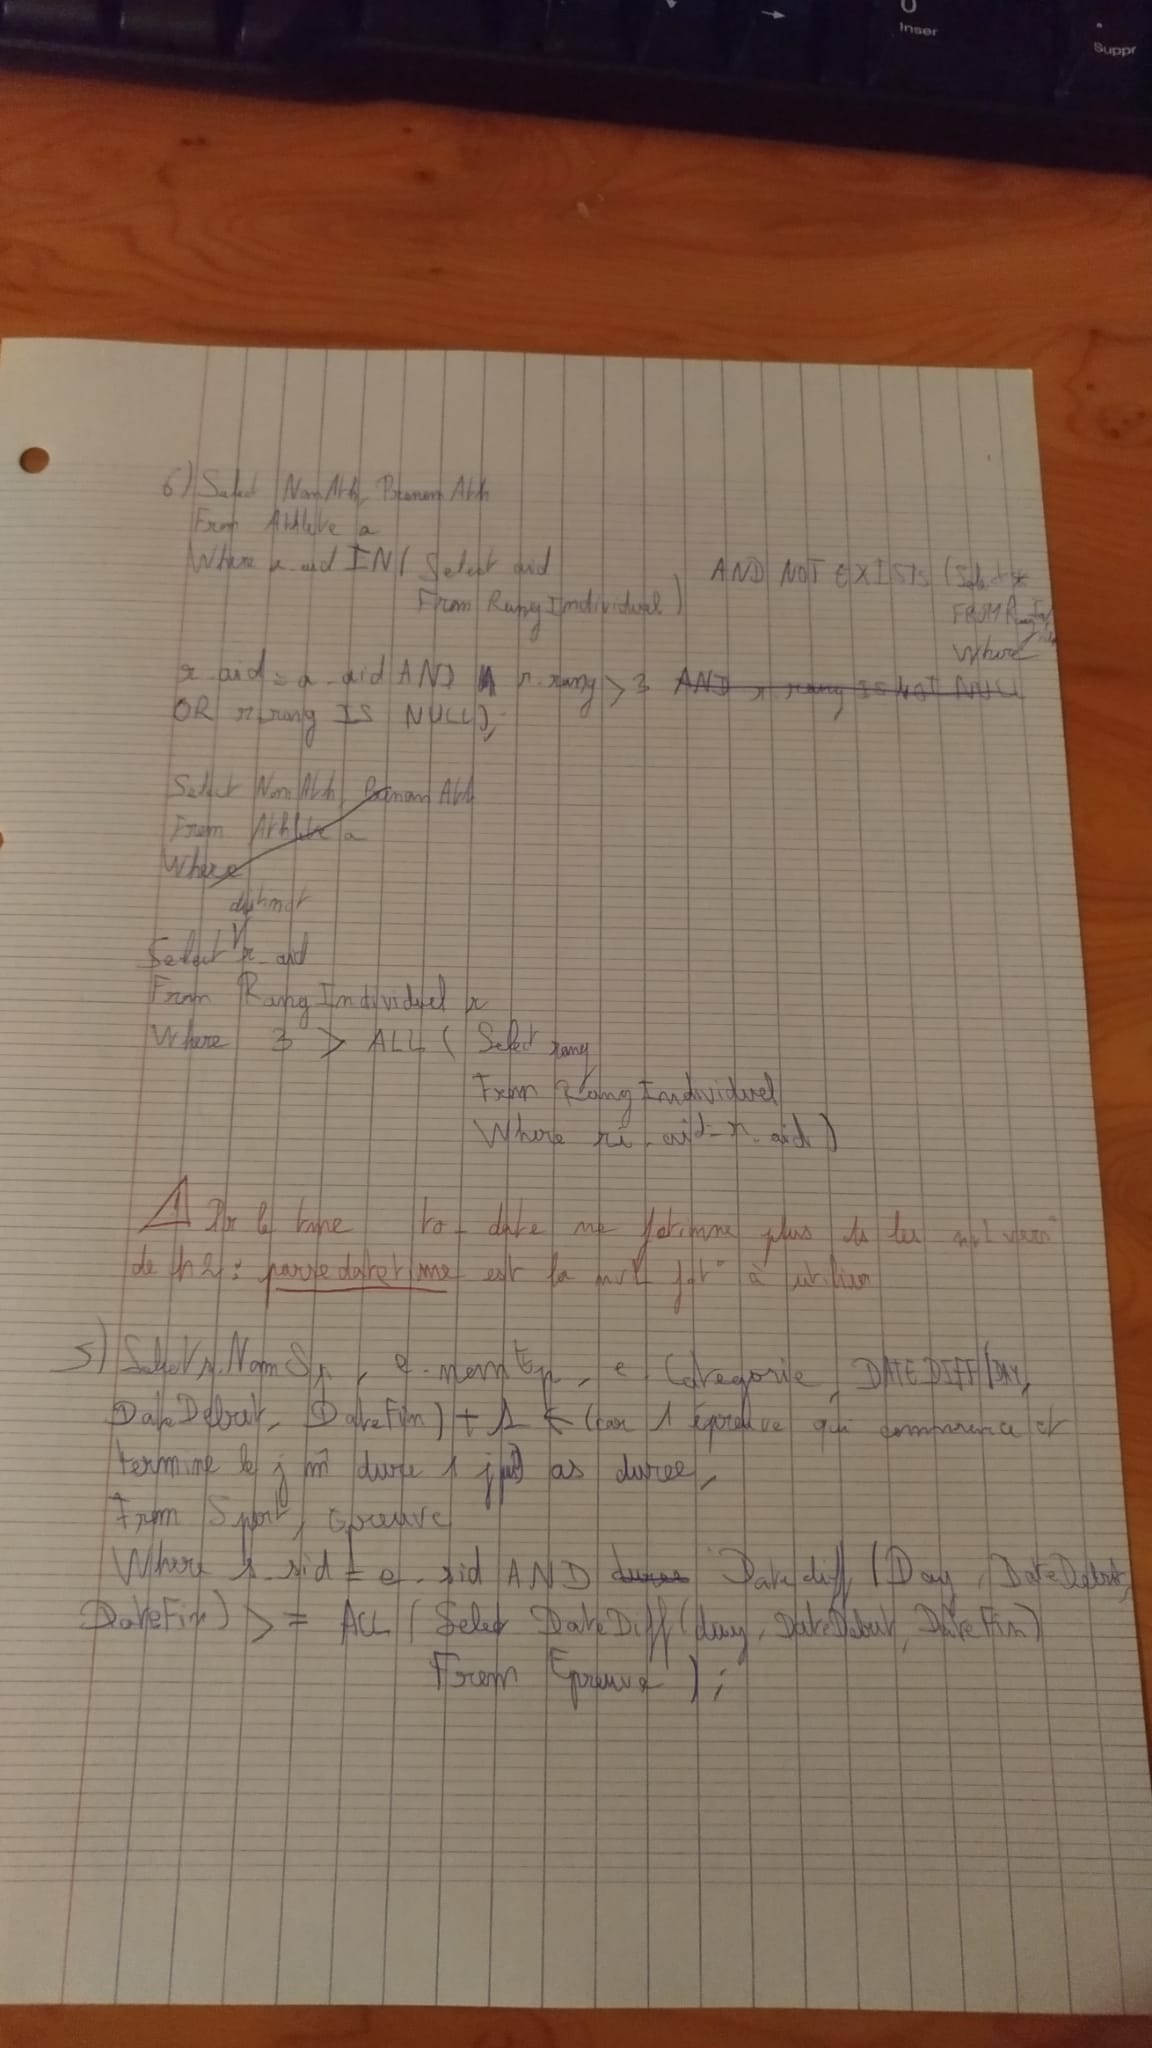 Inser
Suppr
6) Select NomAth, PrenomAth
From Athlete a
Where a.aid IN( Select aid
From RangIndividuel)
AND NOT EXISTS (Select *
FROM
Where
r.aid = a.aid AND r.rang > 3 AND r.rang IS NOT NULL
OR r.rang IS NULL);
Select NomAth, PrenomAth
From Athlete a
Where
distinct
Select r.aid
From RangIndividuel r
Where 3 > ALL ( Select rang
From RangIndividuel
Where ri.aid = r.aid)
to_date ne fonctionne plus ds les
de h2 : parsedatetime est la fct° à utiliser
5) Select s.NomSp, e.nomEp, e.Categorie, DATEDIFF(DAY,
DateDebut, DateFin) + 1 ← (car 1 épreuve qui commence et
termine le j m̂ dure 1 jour) as duree,
From Sport, Epreuve
Where s.sid = e.sid AND duree Datediff (Day, DateDebut,
DateFin) >= ALL (Select DateDiff(day, DateDebut, DateFin)
From Epreuve);